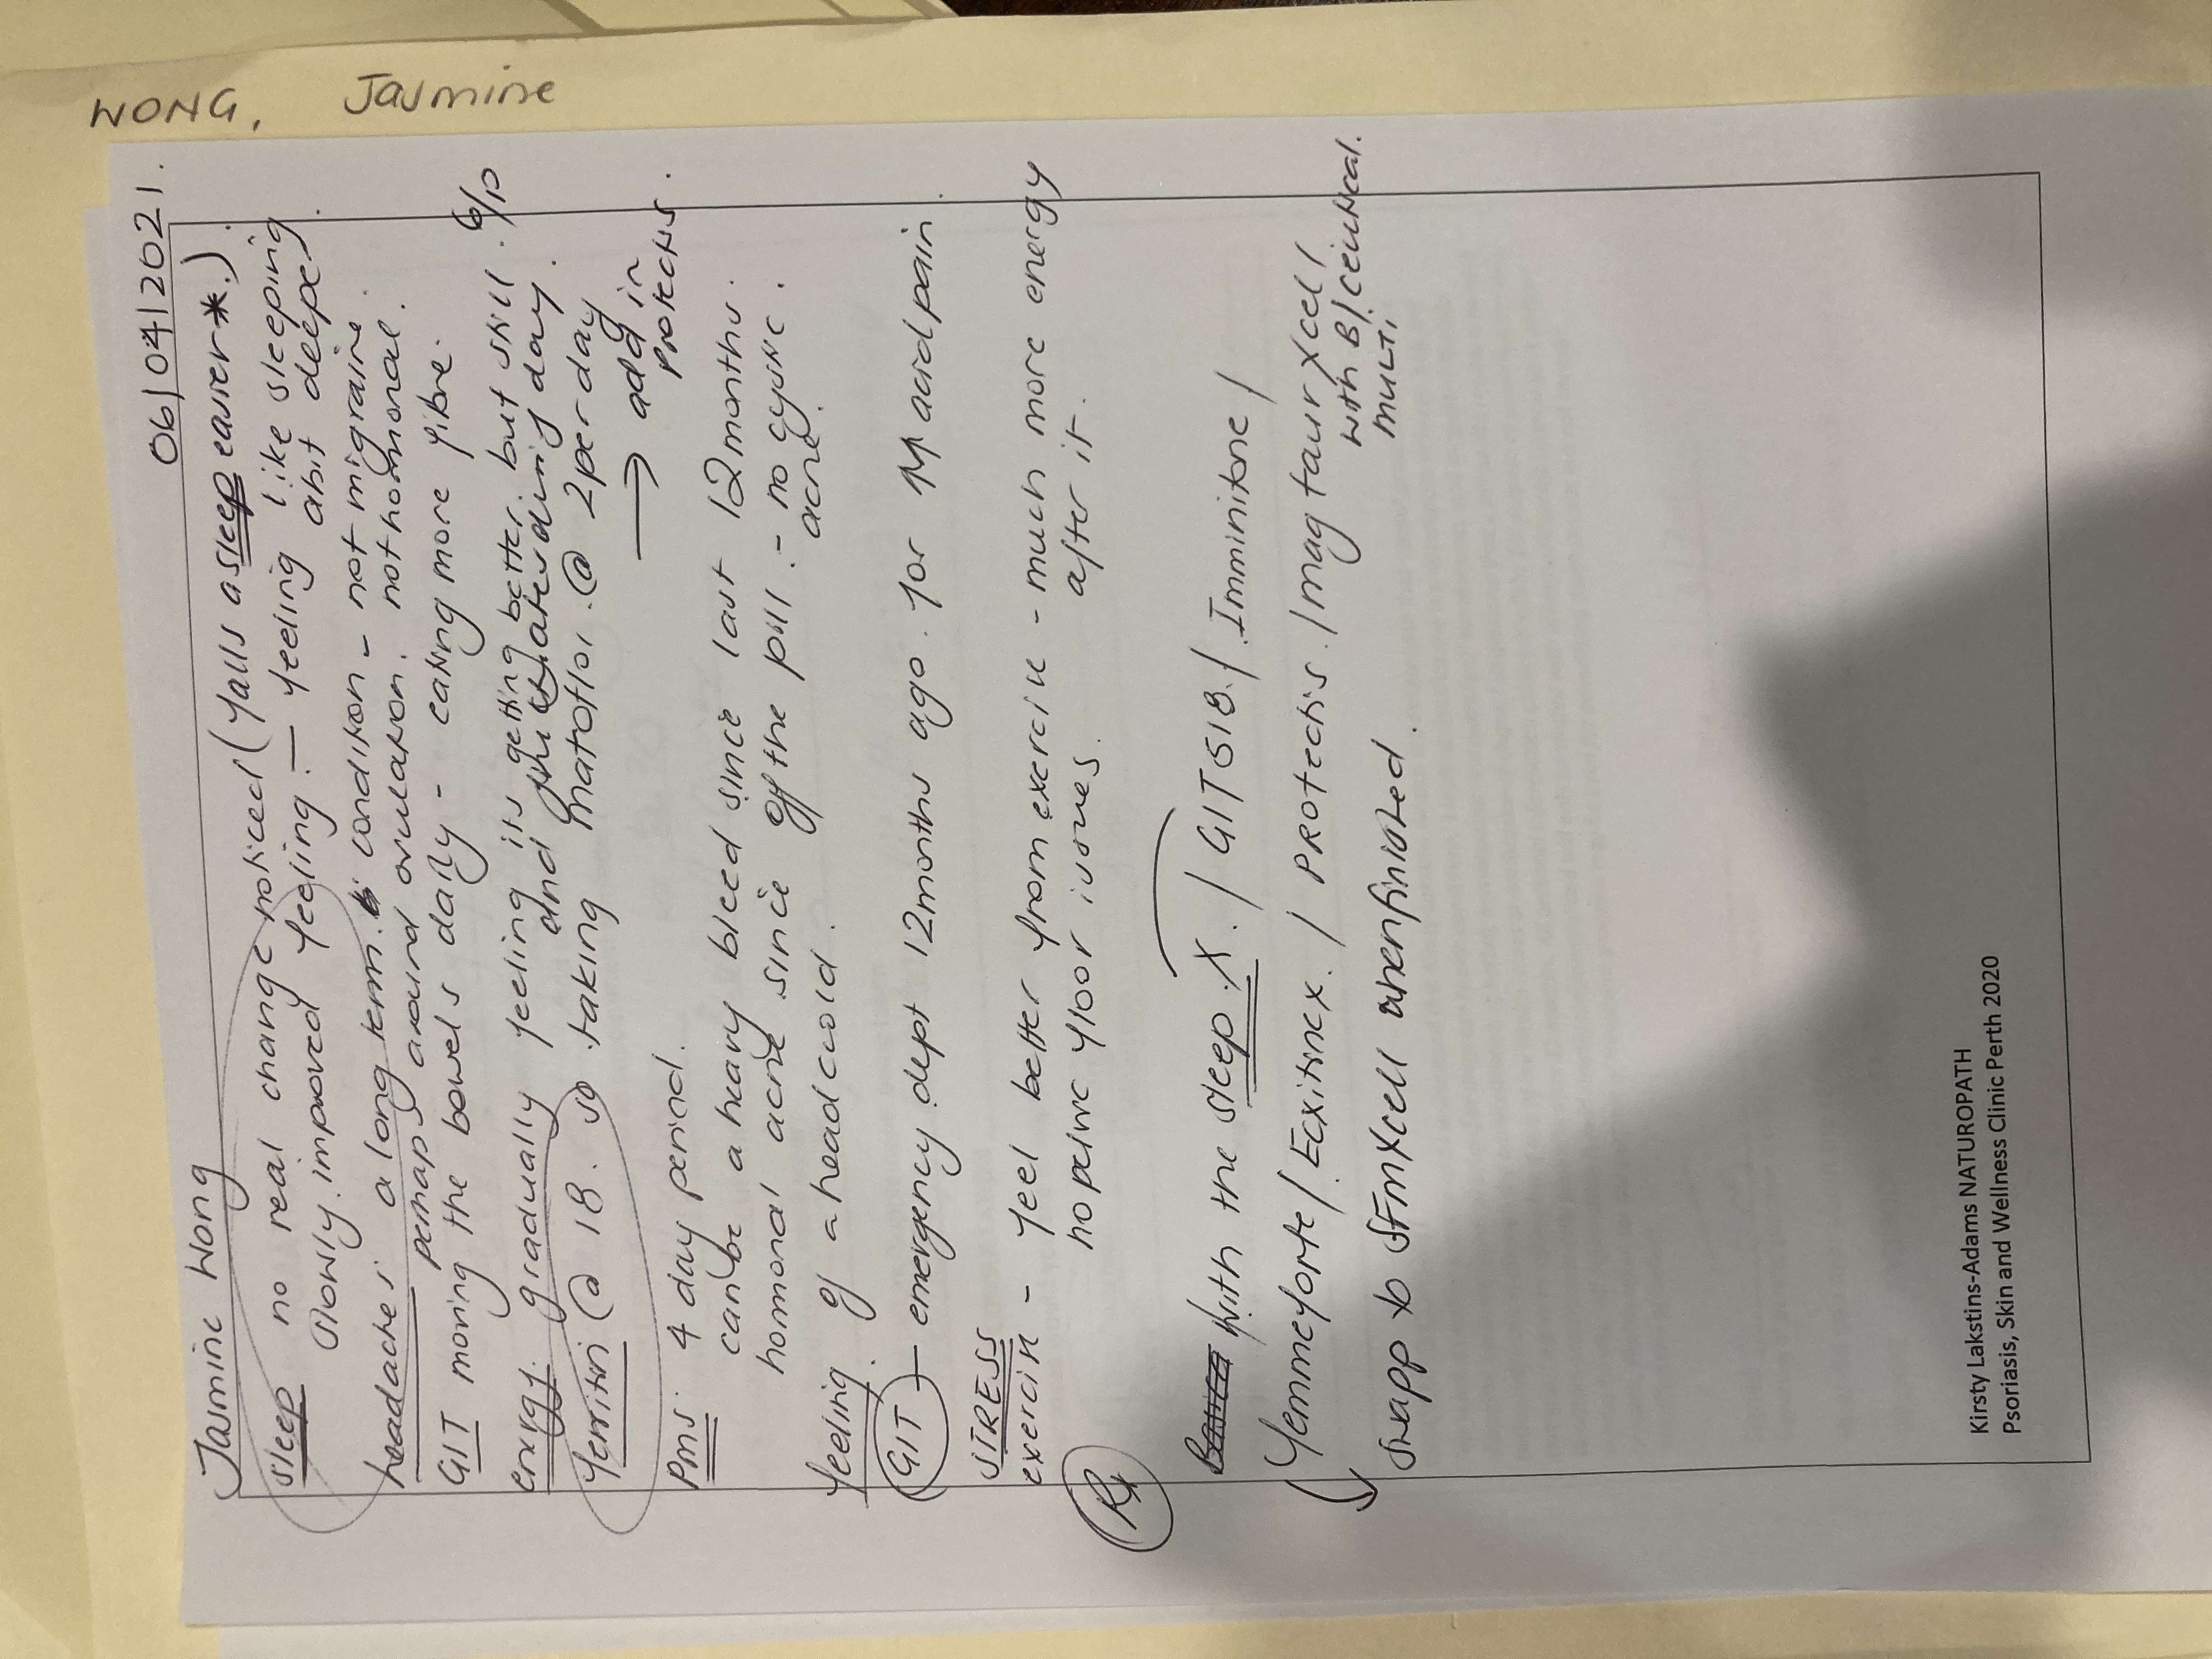 WONG, Jasmine
06/04/2021.
Jasmine Wong
sleep no real change noticed (falls asleep easier*.).
slowly improved feeling. — feeling like sleeping abit deeper.
headaches a long term condition - not migraine.
perhaps around ovulation. not hormonal.
GIT moving the bowels daily - eating more fibre.
energy. gradually feeling its getting better. but still 6/10
and during day.
ferritin @ 18. so taking matoflor. @ 2per day
→ add in protectis.
pms. 4 day period.
can be a heavy bleed since last 12months.
hormonal acne since off the pill. - no cystic acne.
feeling. of a head cold.
GIT — emergency dept 12months ago. for ↑ acid/pain.
STRESS
exercise - feel better from exercise - much more energy after it.
no pelvic floor issues.
Rx
With the sleep X. / GIT SIB. / Imminitone /
femmeforte / Ecxitinex. / PROtectis. / mag taur Xcel /
with B/ceutical. MULTI
swapp to StmXcell when finished.
Kirsty Lakstins-Adams NATUROPATH
Psoriasis, Skin and Wellness Clinic Perth 2020